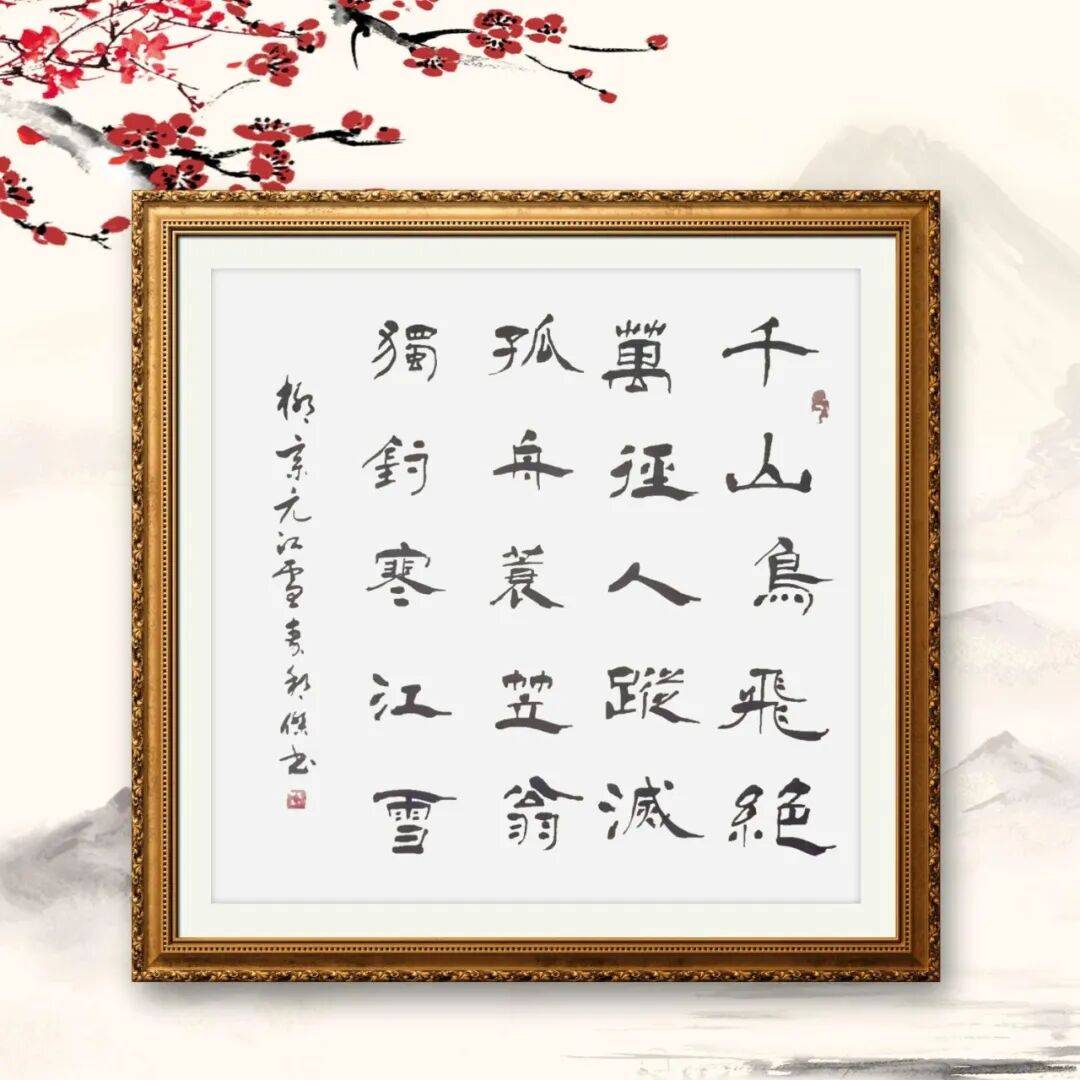 千山鳥飛絶
萬徑人蹤滅
孤舟蓑笠翁
獨釣寒江雪
柳宗元江雪 傑书